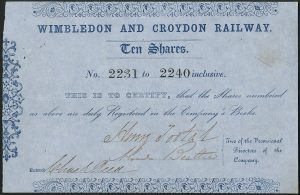 WIMBLEDON AND CROYDON RAILWAY.
Ten Shares.
No. 2231 to 2240 inclusive.
THIS IS TO CERTIFY, that the Shares numbered
as above are duly Registered in the Company's Books.
Two of the Provisional
Directors of the
Company.